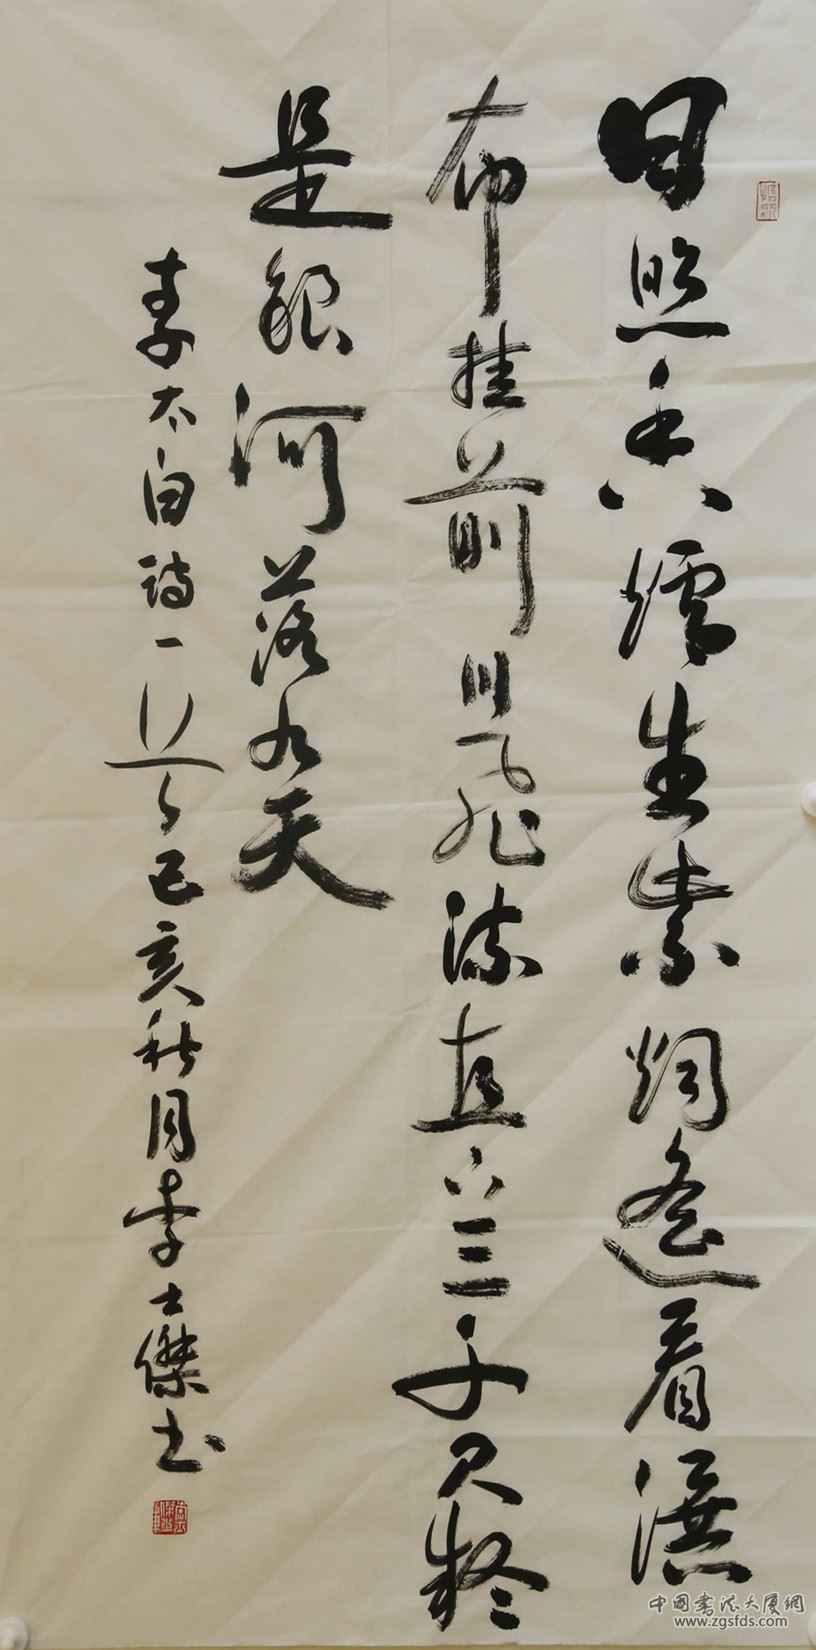 日照香爐生紫烟遥看瀑
布挂前川飛流直下三千尺疑
是銀河落九天
李太白詩一首己亥秋月李士傑书
中國書法大厦網
www.zgsfds.com